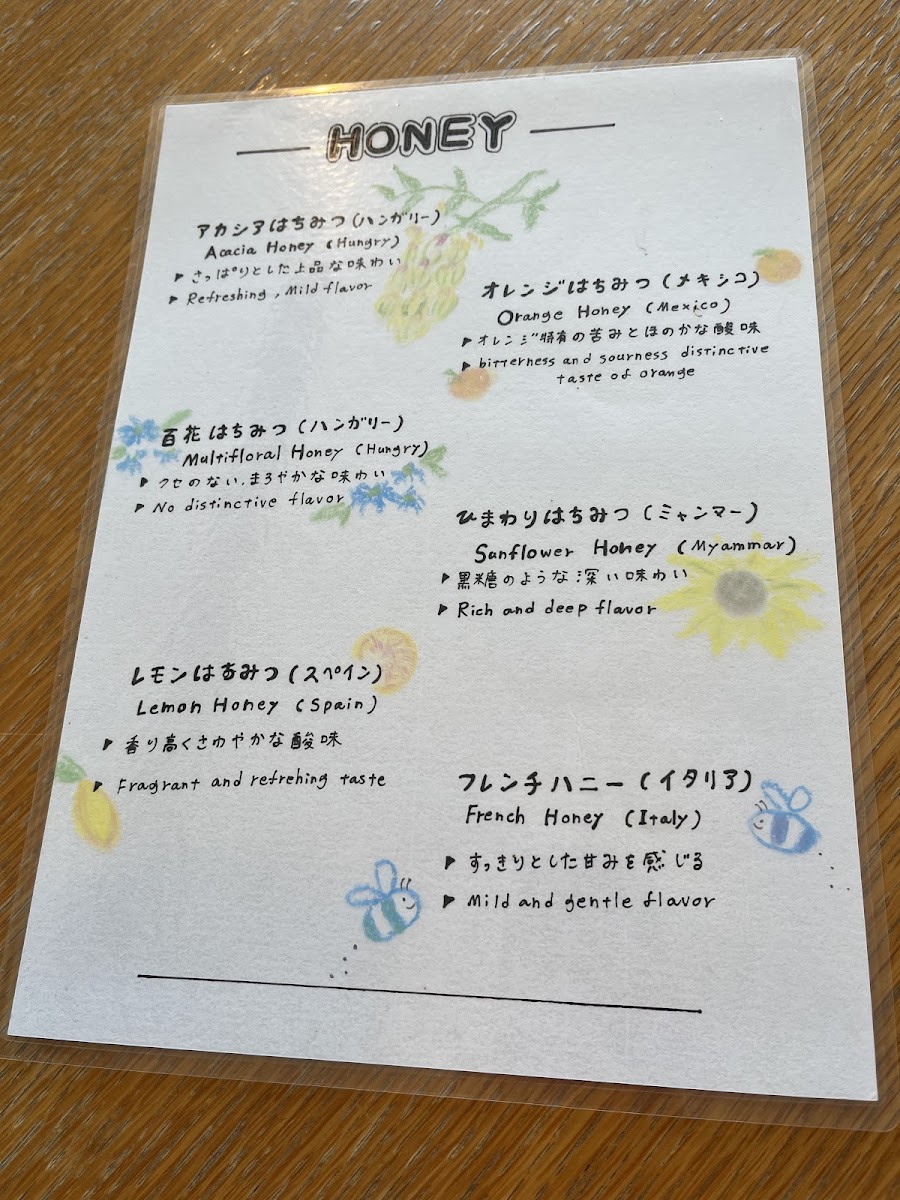 HONEY
アカシアはちみつ(ハンガリー)
Acacia Honey (Hungry)
▶ さっぱりとした上品な味わい
▶ Refreshing, Mild flavor
オレンジはちみつ(メキシコ)
Orange Honey (Mexico)
▶ オレンジ特有の苦みとほのかな酸味
▶ bitterness and sourness distinctive
taste of orange
百花はちみつ(ハンガリー)
Multifloral Honey (Hungry)
▶ クセのない、まろやかな味わい
▶ No distinctive flavor
ひまわりはちみつ(ミャンマー)
Sunflower Honey (Myammar)
▶ 黒糖のような深い味わい
▶ Rich and deep flavor
レモンはちみつ(スペイン)
Lemon Honey (Spain)
▶ 香り高くさわやかな酸味
▶ Fragrant and refrehing taste
フレンチハニー(イタリア)
French Honey (Italy)
▶ すっきりとした甘みを感じる
▶ Mild and gentle flavor